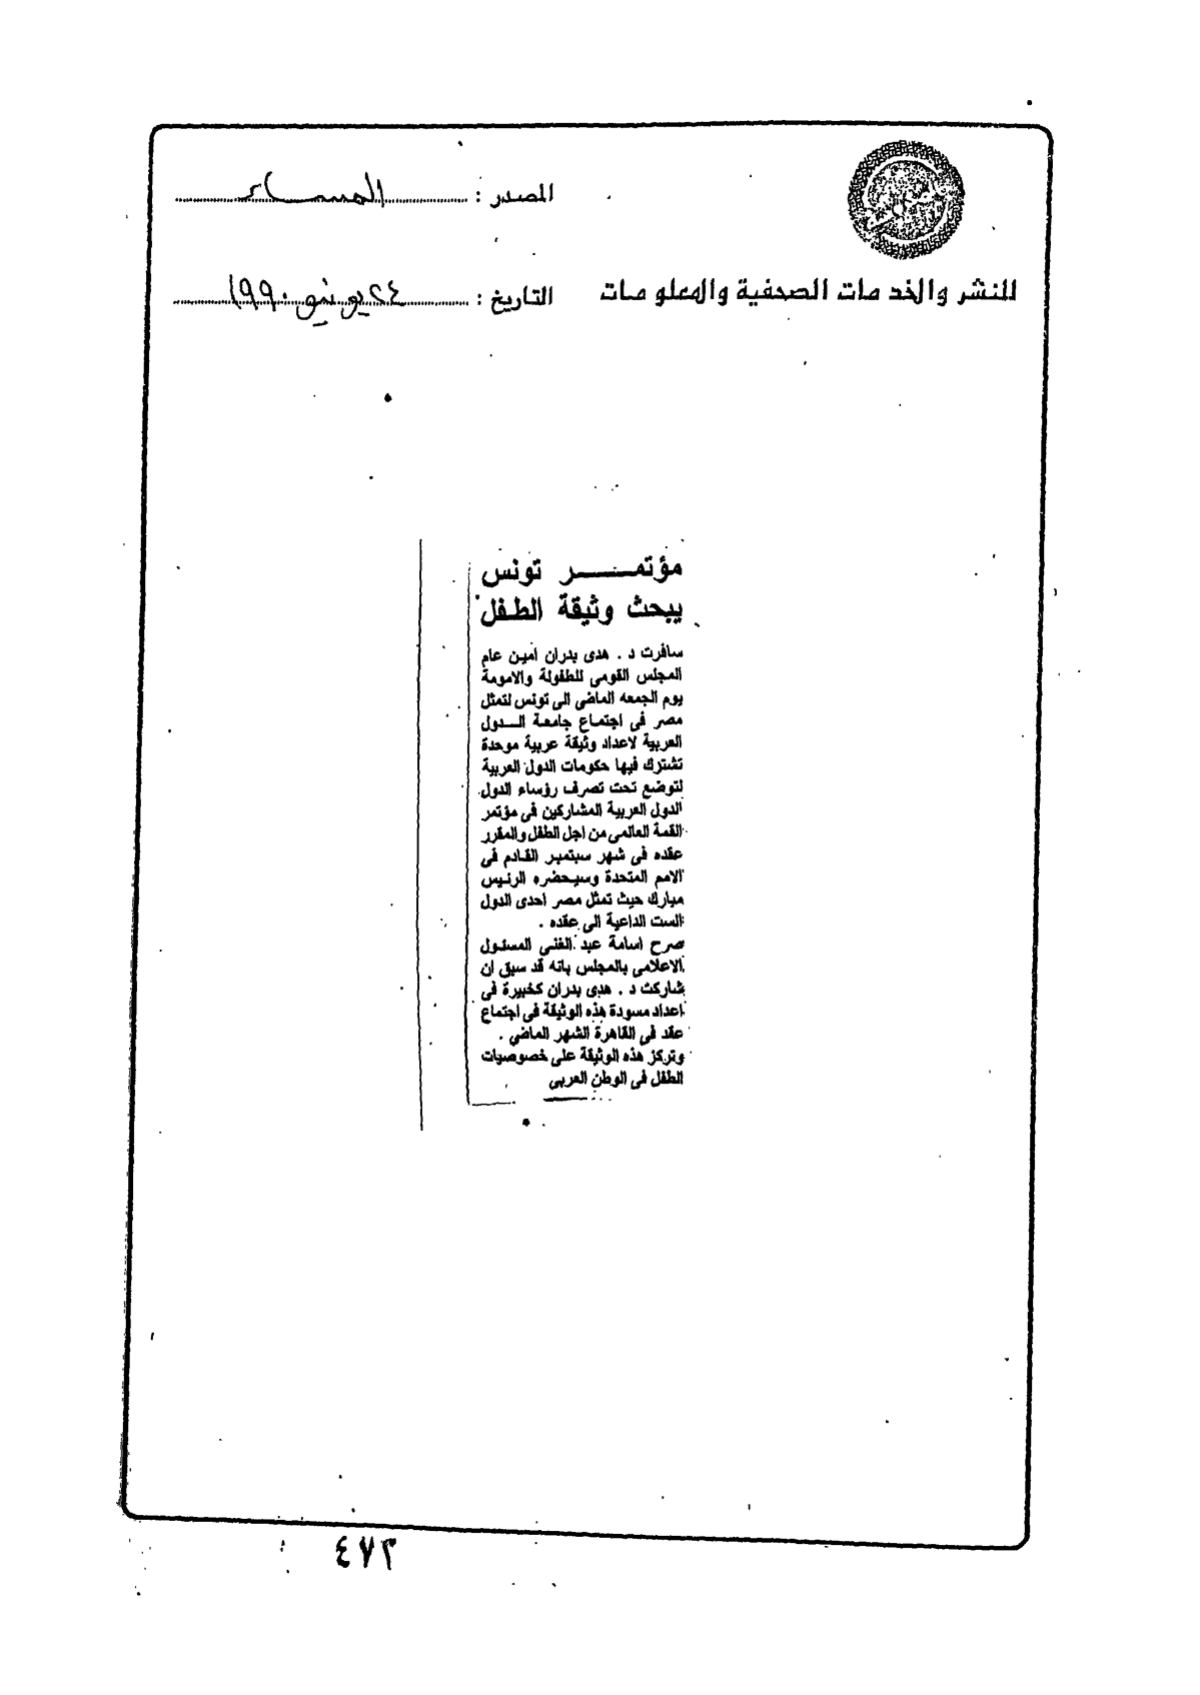 المصدر : المساء
للنشر والخدمات الصحفية والمعلومات
التاريخ : ٢٤ يونيو ١٩٩٠
مؤتمــــر تونس
يبحث وثيقة الطفل
سافرت د . هدى بدران امين عام
المجلس القومى للطفولة والامومة
يوم الجمعه الماضى الى تونس لتمثل
مصر فى اجتماع جامعة الــدول
العربية لاعداد وثيقة عربية موحدة
تشترك فيها حكومات الدول العربية
لتوضع تحت تصرف رؤساء الدول
الدول العربية المشاركين فى مؤتمر
القمة العالمى من اجل الطفل والمقرر
عقده فى شهر سبتمبر القادم فى
الامم المتحدة وسيحضره الرئيس
مبارك حيث تمثل مصر احدى الدول
الست الداعية الى عقده .
صرح اسامة عبد الغنى المسئول
الاعلامى بالمجلس بانه قد سبق ان
شاركت د . هدى بدران كخبيرة فى
اعداد مسودة هذه الوثيقة فى اجتماع
عقد فى القاهرة الشهر الماضى .
وتركز هذه الوثيقة على خصوصيات
الطفل فى الوطن العربى
٤٧٢